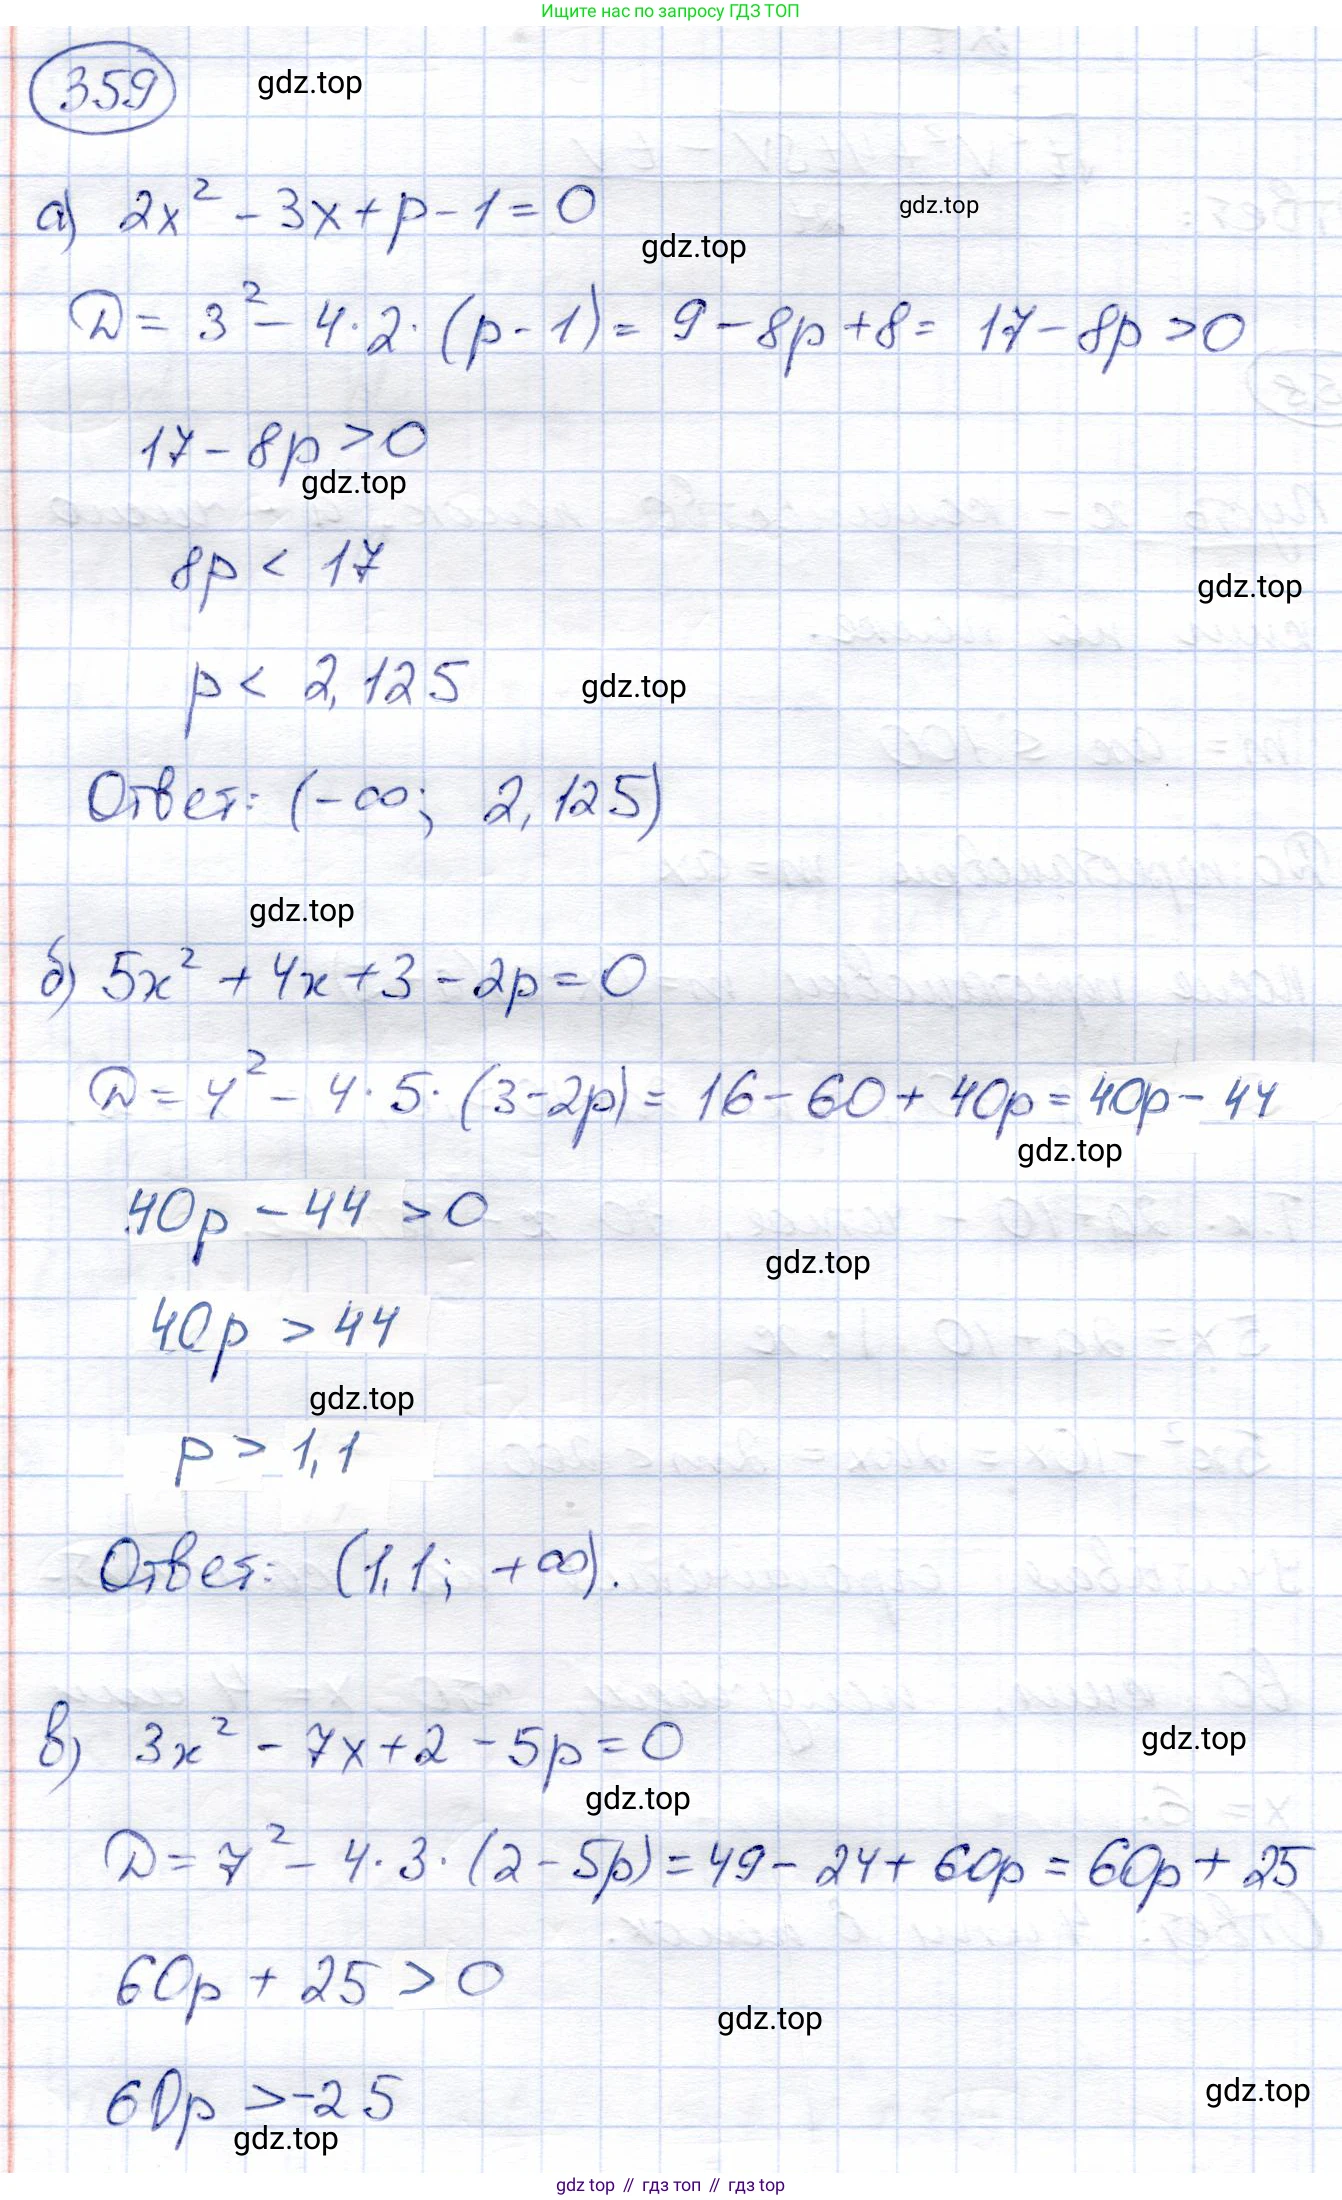 Ищите нас по запросу ГДЗ ТОП
359
gdz.top
а) 2x² - 3x + p - 1 = 0
gdz.top
gdz.top
D = 3² - 4·2·(p - 1) = 9 - 8p + 8 = 17 - 8p > 0
17 - 8p > 0
gdz.top
8p < 17
gdz.top
p < 2,125
gdz.top
Ответ: (-∞; 2,125)
gdz.top
б) 5x² + 4x + 3 - 2p = 0
D = 4² - 4·5·(3 - 2p) = 16 - 60 + 40p = 40p - 44
gdz.top
40p - 44 > 0
gdz.top
40p > 44
gdz.top
p > 1,1
Ответ: (1,1; +∞).
в) 3x² - 7x + 2 - 5p = 0
gdz.top
gdz.top
D = 7² - 4·3·(2 - 5p) = 49 - 24 + 60p = 60p + 25
60p + 25 > 0
gdz.top
60p > -25
gdz.top
gdz.top
gdz top // гдз топ // гдз top